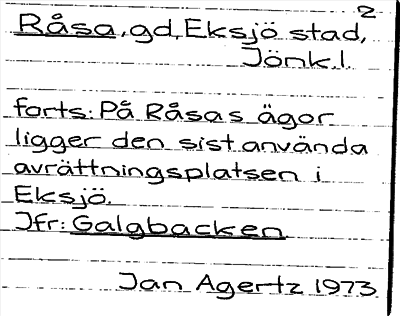 2
Råsa, gd, Eksjö stad,
Jönk.l.
forts: På Råsas ägor
ligger den sist använda
avrättningsplatsen i
Eksjö.
Jfr: Galgbacken
Jan Agertz 1973